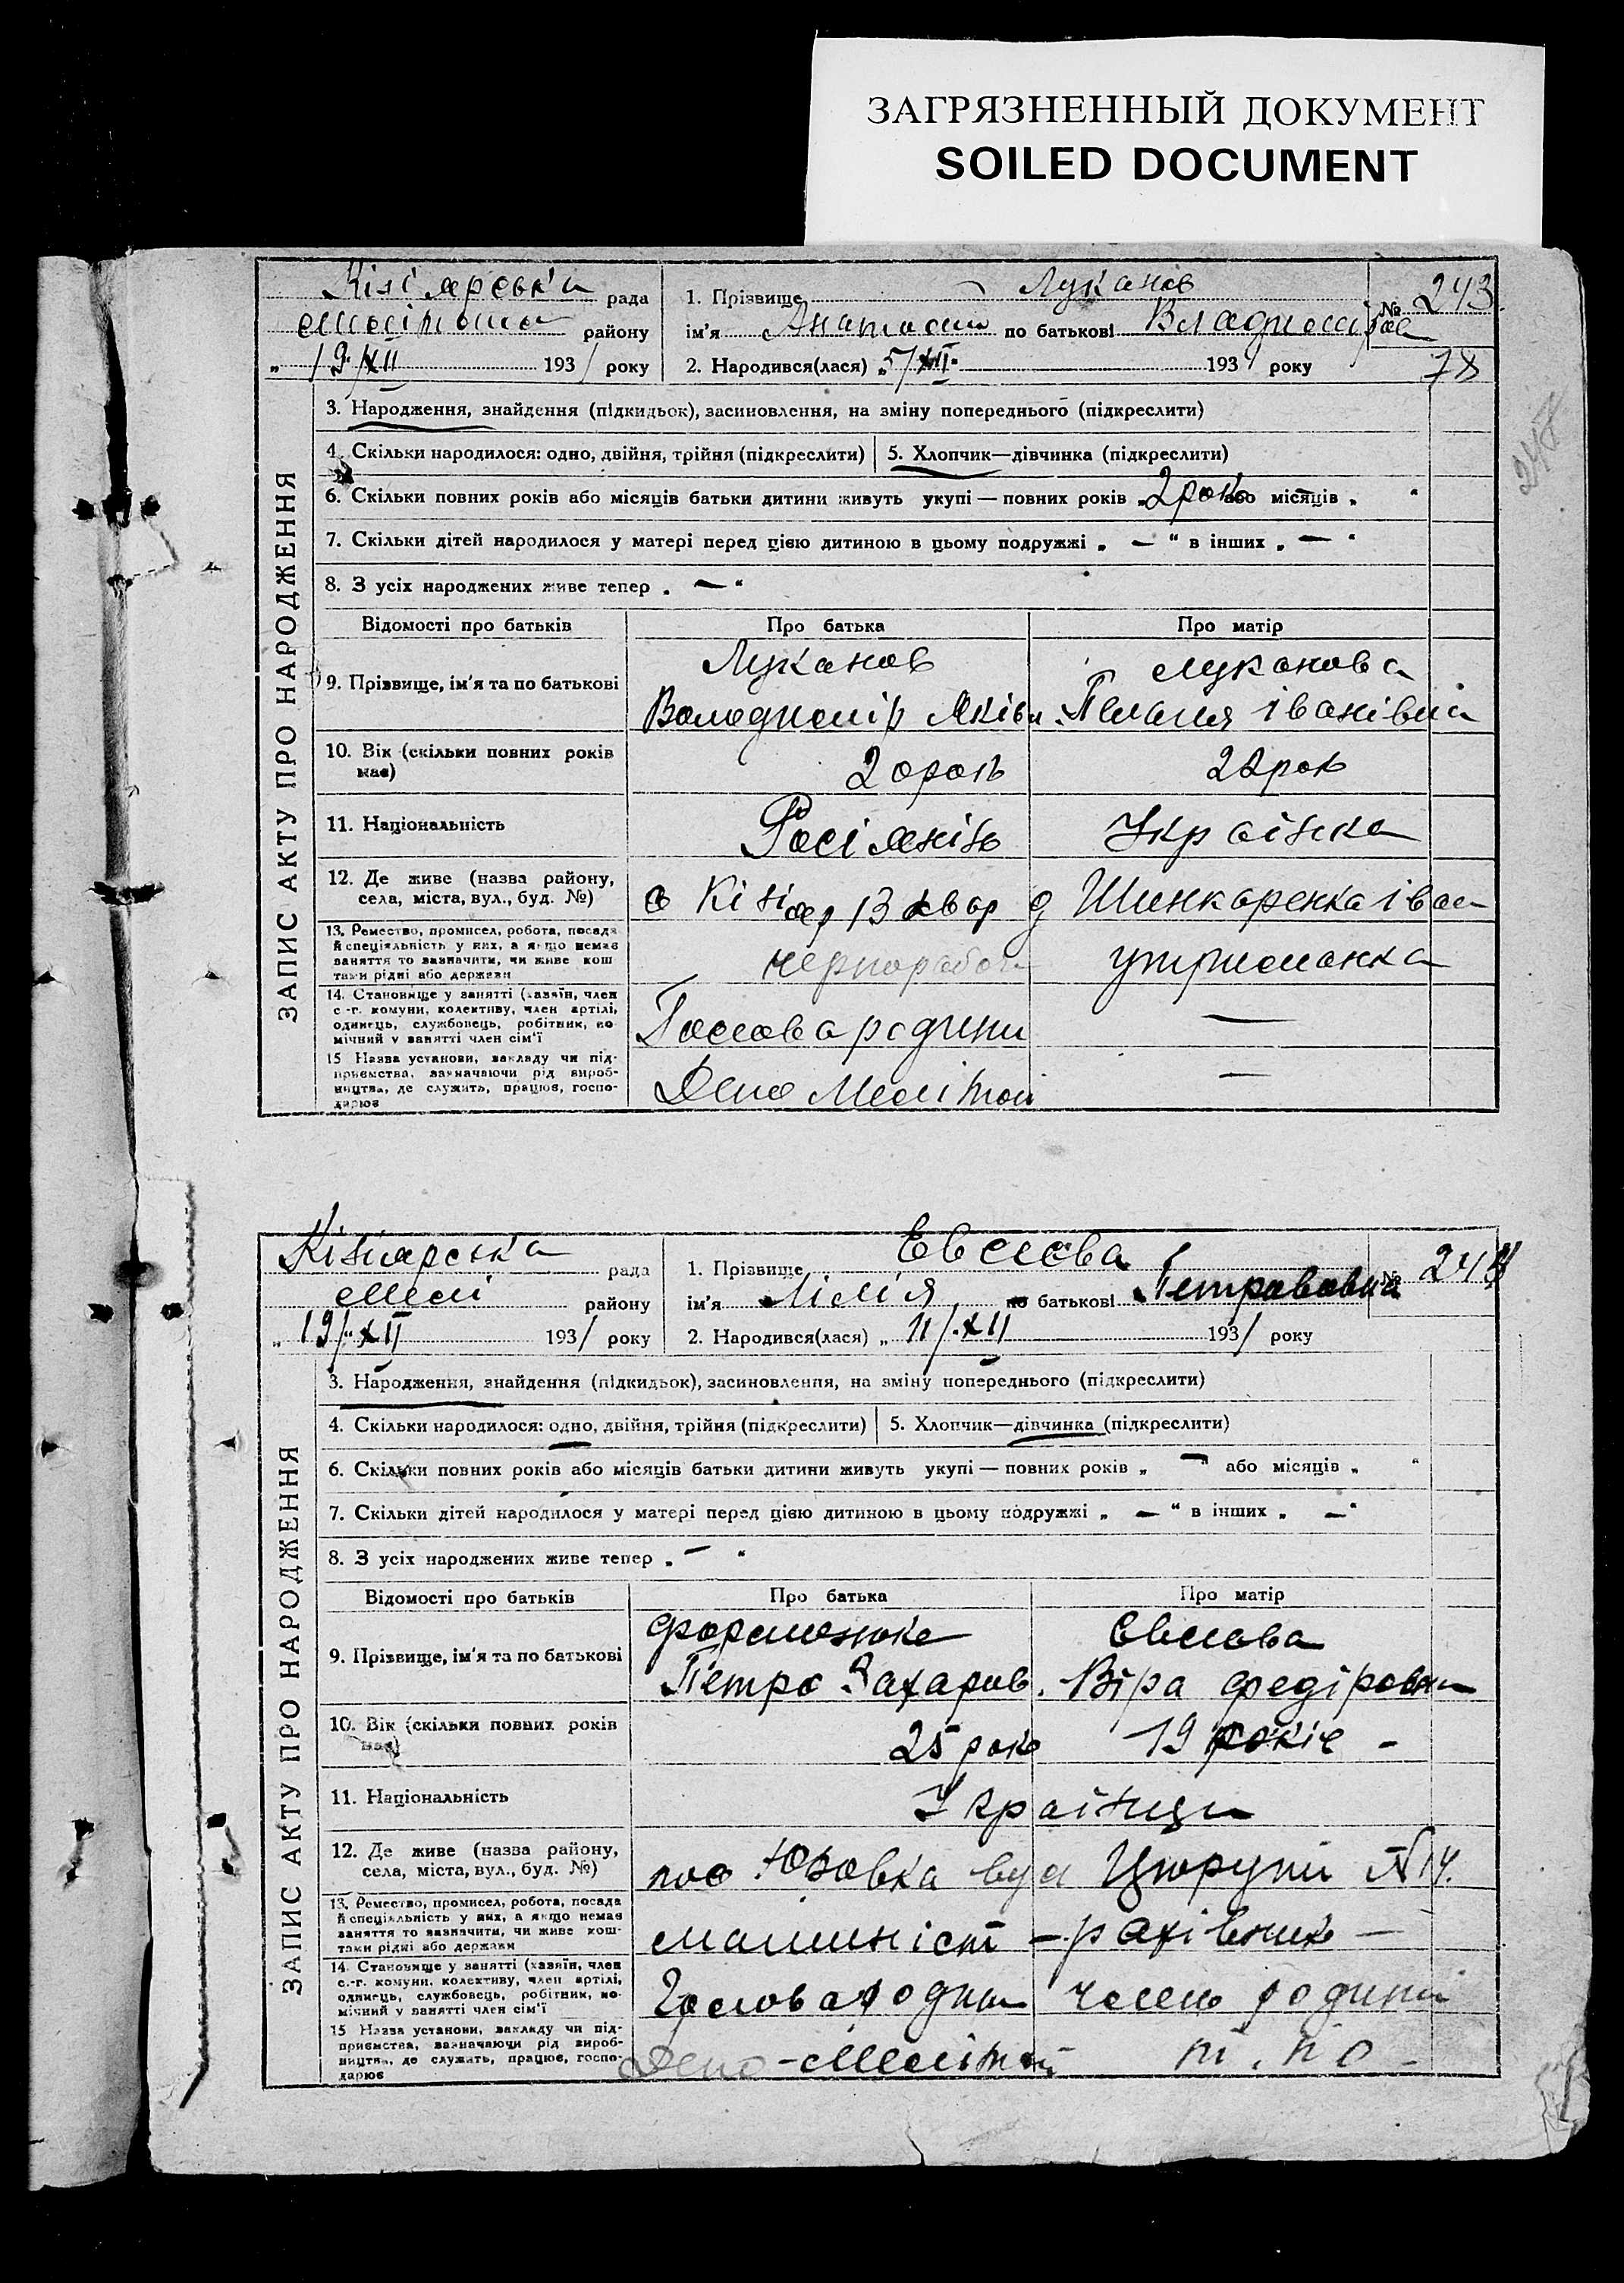 ЗАГРЯЗНЕННЫЙ ДОКУМЕНТ
SOILED DOCUMENT
Кізіярська рада
району
"19/XII 1931 року
1. Прізвище Луканов
ім'я по батькові
№ 243
2. Народився(лася) „5/XII 1931 року
78
ЗАПИС АКТУ ПРО НАРОДЖЕННЯ
3. Народження, знайдення (підкидьок), засиновлення, на зміну попереднього (підкреслити)
4. Скільки народилося: одно, двійня, трійня (підкреслити) 5. Хлопчик—дівчинка (підкреслити)
6. Скільки повних років або місяців батьки дитини живуть укупі — повних років „2 рок або місяців „ "
7. Скільки дітей народилося у матері перед цією дитиною в цьому подружжі „ — " в інших „ — "
8. З усіх народжених живе тепер „ — "
Відомості про батьків Про батька Про матір
9. Прізвище, ім'я та по батькові
Луканов Луканова
Володимир Яків. Іванівна
10. Вік (скільки повних років має)
20 рок 22 рок
11. Національність
Росіянін Українка
12. Де живе (назва району, села, міста, вул., буд. №)
с Кізіяр 13 квар д Шинкаренка Іван
13. Ремество, промисел, робота, посада й спеціяльність у них, а якщо немає заняття то зазначити, чи живе коштами рідні або держави
чернорабоч утриманка
14. Становище у занятті (хазяїн, член с.-г. комуни, колективу, член артілі, одинець, службовець, робітник, помічний у занятті член сім'ї
Голова родини —
15 Назва установи, закладу чи підприємства, зазначаючи рід виробництва, де служить, працює, господарює
Депо Мелітоп —
Кізіярська рада
Мелі району
„19/XII 1931 року
1. Прізвище Евсєєва
ім'я Лілія по батькові Петрововна
№ 244
2. Народився(лася) „11/XII 1931 року
ЗАПИС АКТУ ПРО НАРОДЖЕННЯ
3. Народження, знайдення (підкидьок), засиновлення, на зміну попереднього (підкреслити)
4. Скільки народилося: одно, двійня, трійня (підкреслити) 5. Хлопчик—дівчинка (підкреслити)
6. Скільки повних років або місяців батьки дитини живуть укупі — повних років „ — " або місяців „ "
7. Скільки дітей народилося у матері перед цією дитиною в цьому подружжі „ — " в інших „ — "
8. З усіх народжених живе тепер „ — "
Відомості про батьків Про батька Про матір
9. Прізвище, ім'я та по батькові
Петро Захаров. Віра Федіровна
10. Вік (скільки повних років має)
25 рок 19 років —
11. Національність
Українци
12. Де живе (назва району, села, міста, вул., буд. №)
пос Юзовка вул Цюрупи №14.
13. Ремество, промисел, робота, посада й спеціяльність у них, а якщо немає заняття то зазначити, чи живе коштами рідні або держави
машиніст — рахівник —
14. Становище у занятті (хазяїн, член с.-г. комуни, колективу, член артілі, одинець, службовець, робітник, помічний у занятті член сім'ї
Голова родини член родини
15 Назва установи, закладу чи підприємства, зазначаючи рід виробництва, де служить, працює, господарює
Депо-Меліто